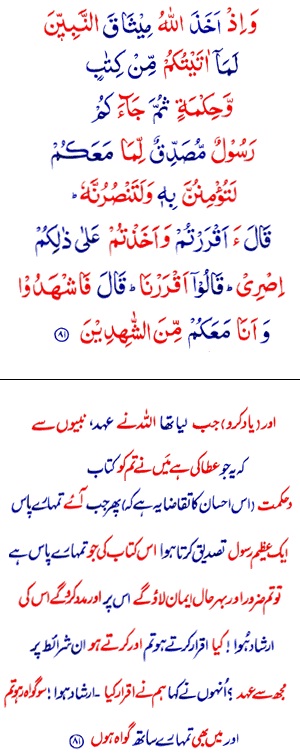 وَاِذْ اَخَذَ اللّٰهُ مِيْثَاقَ النَّبِيّٖنَ
لَمَاۤ اٰتَيْتُكُمْ مِّنْ كِتٰبٍ
وَّحِكْمَةٍ ثُمَّ جَآءَ كُمْ
رَسُوْلٌ مُّصَدِّقٌ لِّمَا مَعَكُمْ
لَتُؤْمِنُنَّ بِهٖ وَلَتَنْصُرُنَّهٗ ؕ
قَالَ ءَ اَقْرَرْتُمْ وَاَخَذْتُمْ عَلٰى ذٰلِكُمْ
اِصْرِىْ ؕ قَالُوْۤا اَقْرَرْنَا ؕ قَالَ فَاشْهَدُوْا
وَ اَنَا مَعَكُمْ مِّنَ الشّٰهِدِيْنَ ﴿۸۱﴾
اور (یاد کرو) جب لیا تھا اللہ نے عہد، نبیوں سے
کہ یہ جو عطا کی ہے مَیں نے تم کو کتاب
و حکمت (اس احسان کا تقاضا یہ ہے کہ) پھر جب آئے تمہارے پاس
ایک عظیم رسول تصدیق کرتا ہوا اس کتاب کی جو تمہارے پاس ہے
تو تم ضرور اور بہر حال ایمان لاؤ گے اس پر اور مدد کرو گے اس کی
ارشاد ہُوا ! کیا اقرار کرتے ہو تم اور کرتے ہو ان شرائط پر
مجھ سے عہد ؟ اُنہوں نے کہا ہم نے اقرار کیا ۔ ارشاد ہوا ! سو گواہ رہو تم
اور میں بھی تمہارے ساتھ گواہ ہوں ﴿۸۱﴾